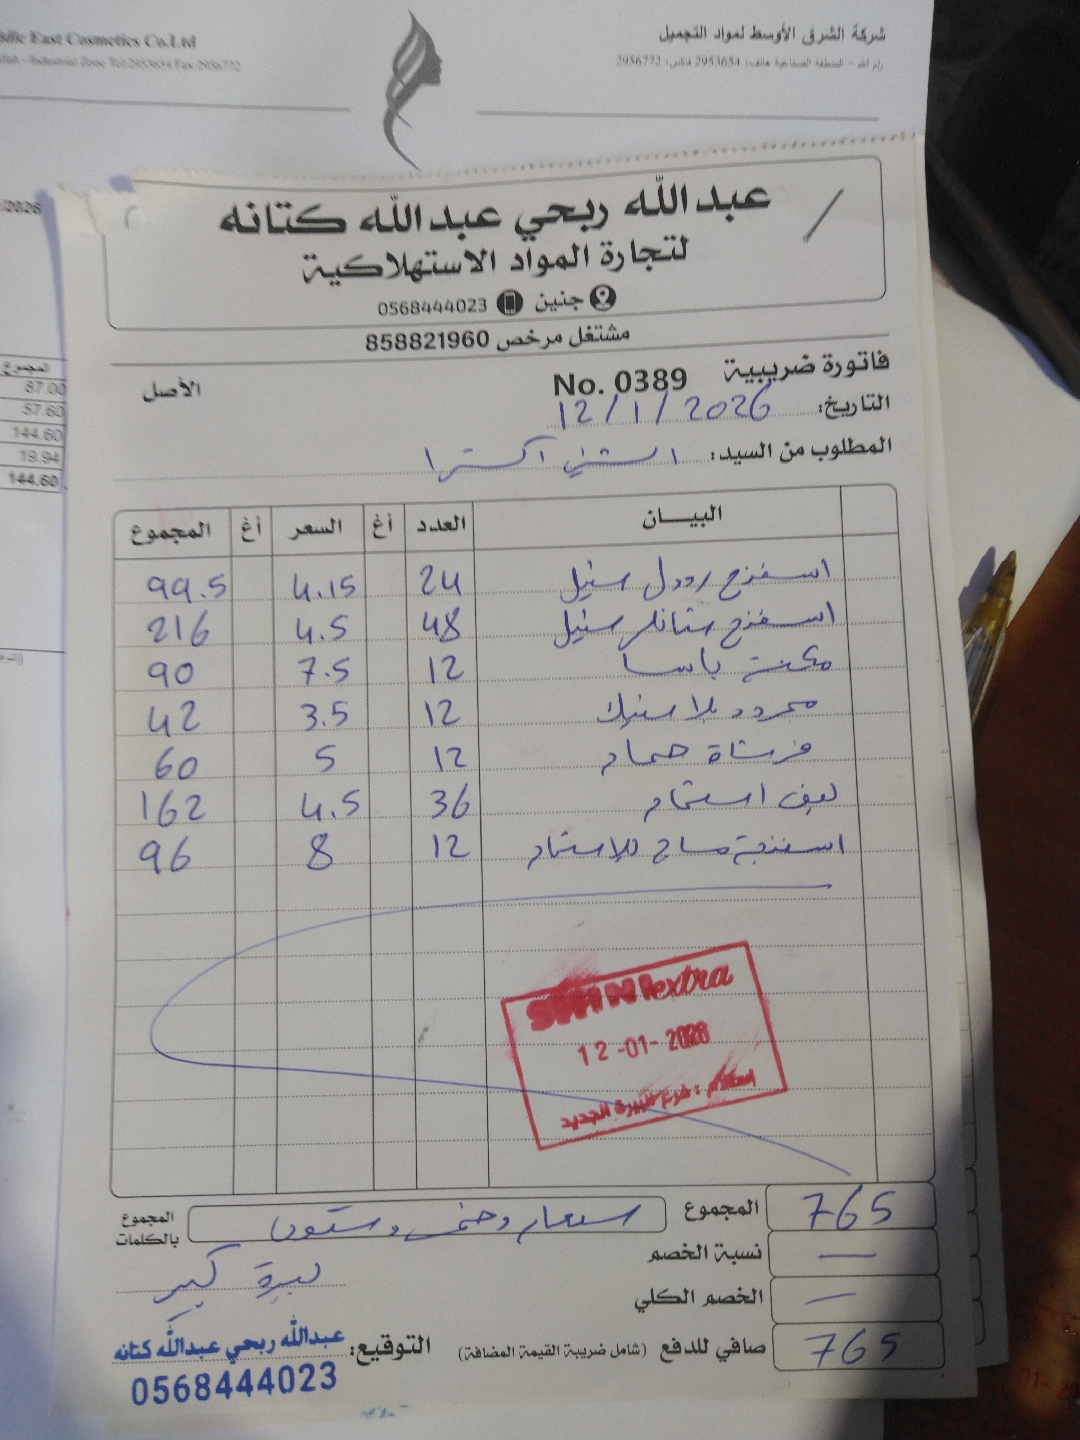 ddle East Cosmetics Co.Ltd
شركة الشرق الأوسط لمواد التجميل
Industrial Zone Tel:2953654 Fax:2956772
رام الله - المنطقة الصناعية هاتف: 2953654 فاكس: 2956772
/2026
المجموع
87.00
57.60
144.60
19.94
144.60
عبدالله ربحي عبدالله كتانه
لتجارة المواد الاستهلاكية
جنين 0568444023
مشتغل مرخص 858821960
فاتورة ضريبية No. 0389 الأصل
التاريخ: 12/1/2026
المطلوب من السيد: الشني اكسترا
البيـــان العدد أغ السعر أغ المجموع
اسفنج رودل ستيل 24 4.15 99.5
اسفنج ستانلر ستيل 48 4.5 216
مكنسة باسا 12 7.5 90
مجرود بلاستيك 12 3.5 42
فرشاة حمام 12 5 60
ليف استحمام 36 4.5 162
اسفنجة مساج للاستحمام 12 8 96
SHINI extra
12-01-2026
استلام: فرع البيرة الجديد
المجموع 765
المجموع بالكلمات سبعماية وخمس وستون
ليرة
نسبة الخصم —
الخصم الكلي —
صافي للدفع (شامل ضريبة القيمة المضافة) 765
التوقيع: عبدالله ربحي عبدالله كتانه
0568444023